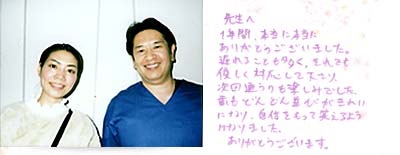 先生へ
1年間、本当に本当に
ありがとうございました。
遅れることも多く、それでも
優しく対応して下さり
次回通うのも楽しみでした。
歯もどんどん並びがきれいに
なり、自信をもって笑えるよう
になりました。
ありがとうございます。